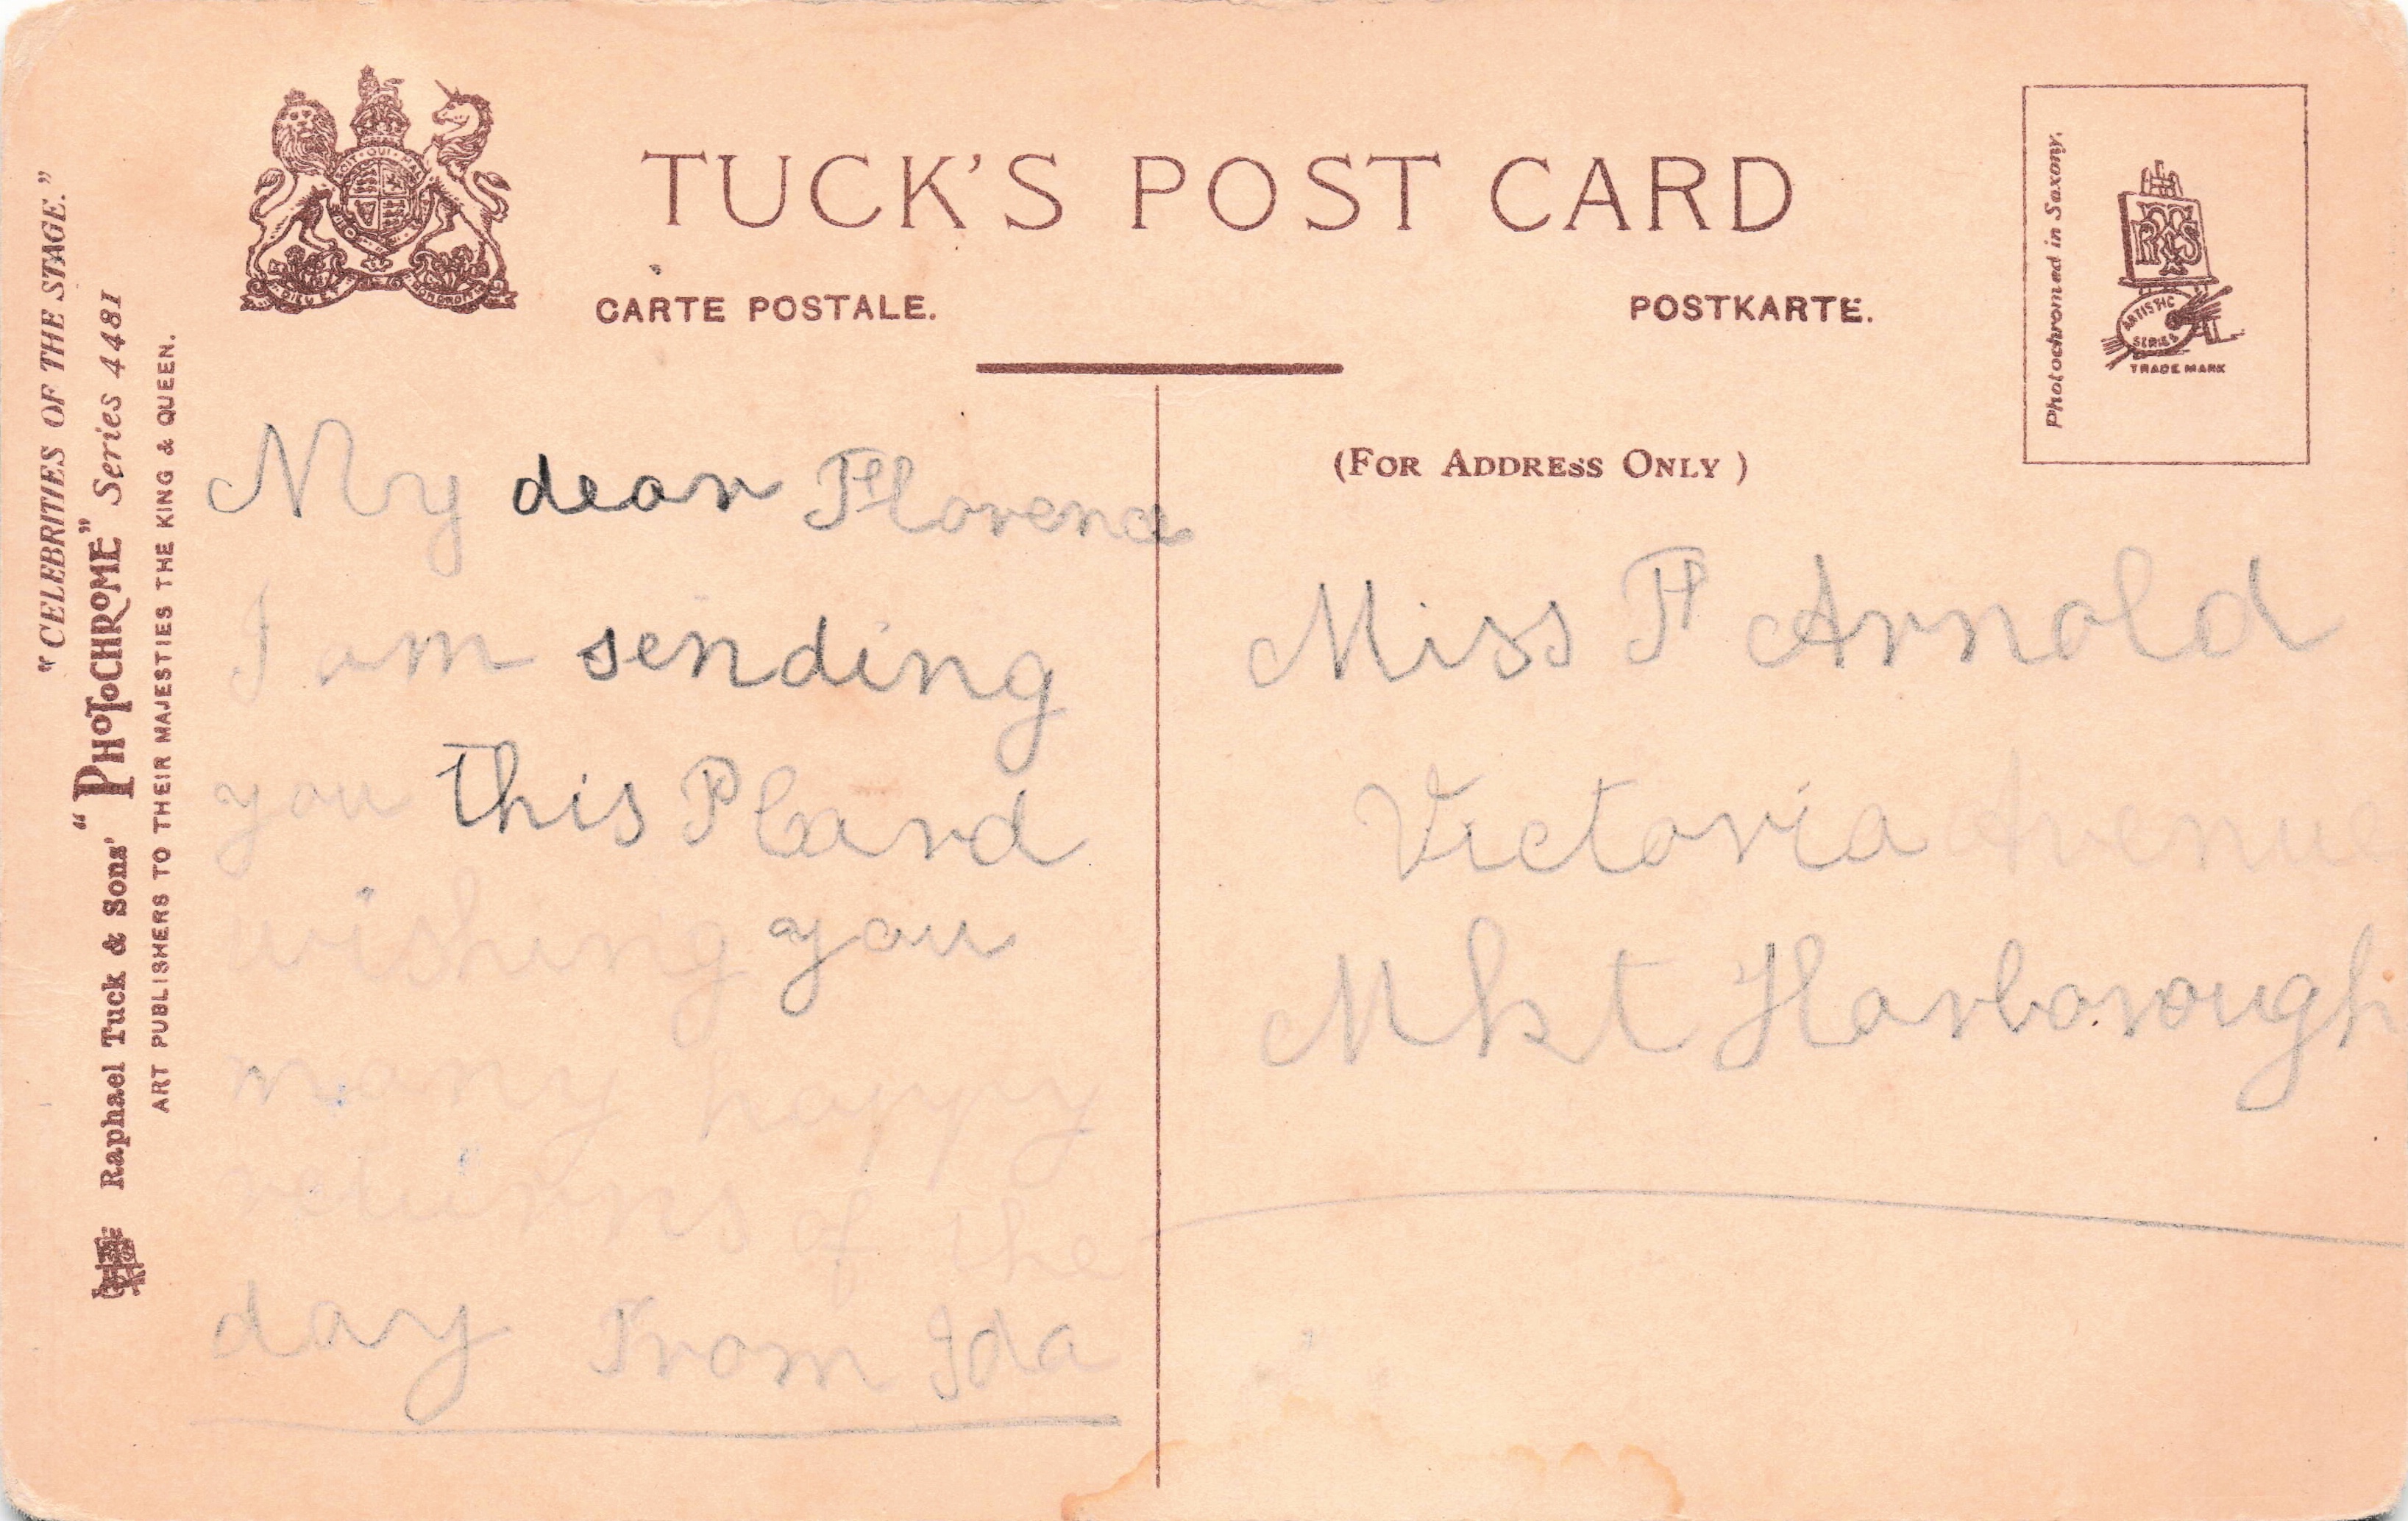 "CELEBRITIES OF THE STAGE."
Raphael Tuck & Sons' "PHOTOCHROME" Series 4481
ART PUBLISHERS TO THEIR MAJESTIES THE KING & QUEEN.
TUCK'S POST CARD
CARTE POSTALE. POSTKARTE.
Photochromed in Saxony.
ARTISTIC
SERIES
TRADE MARK
(FOR ADDRESS ONLY)
My dear Florence
I am sending
you this P Card
wishing you
many happy
returns of the
day From Ida
Miss F Arnold
Victoria Avenue
Mkt Harborough